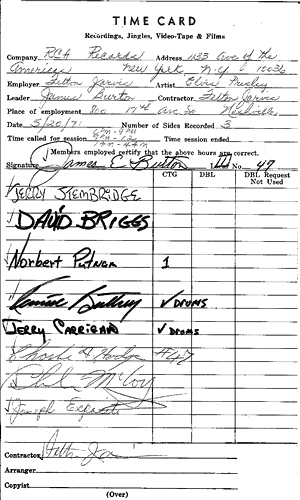 TIME CARD
Recordings, Jingles, Video-Tape & Films
Company RCA Records Address 1133 Ave of the
Americas New York N.Y. 10036
Employer Felton Jarvis Artist Elvis Presley
Leader James Burton Contractor Felton Jarvis
Place of employment 800 17th Ave So Nashville
Date 5/21/71 Number of Sides Recorded 3
6PM-9PM
Time called for session Time session ended
Members employed certify that the above hours are correct.
Signature James E. Burton No. 47
CTG DBL DRL Request Not Used
JERRY STEMBRIDGE
DAVID BRIGGS
Norbert Putnam 1
Kenneth Buttrey ✓DRUMS
JERRY CARRIGAN ✓DRUMS
Charles F Hodge #47
Charlie McCoy
Joseph Esposito
Contractor
Arranger
Copyist
(Over)